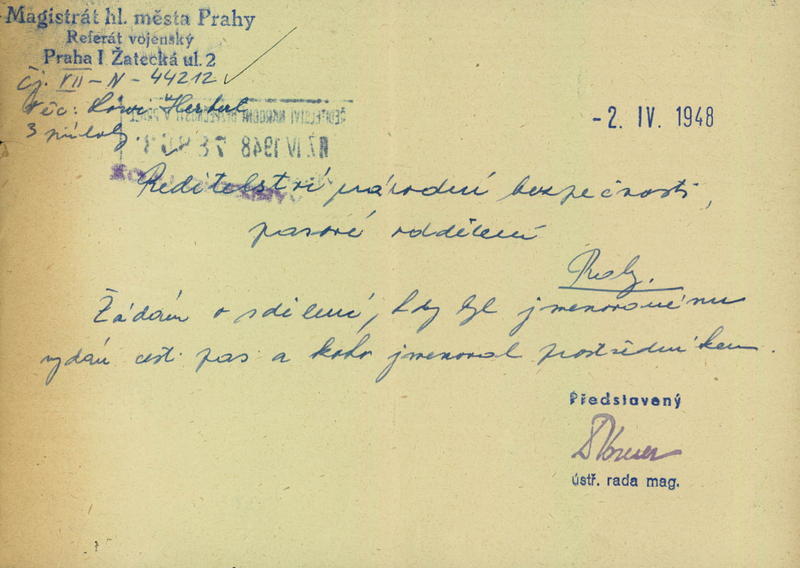 Magistrát hl. města Prahy
Referát vojenský
Praha I Žatecká ul. 2
Čj. VII-N-44212
věc: Herbert
3 přílohy
-2. IV. 1948
ŘEDITELSTVÍ NÁRODNÍ BEZPEČNOSTI
IV 1948
Ředitelství národní bezpečnosti,
pasové oddělení
Žádám o sdělení, kdy byl jmenovanému
vydán cest. pas a koho jmenoval postředníkem.
Představený
ústř. rada mag.